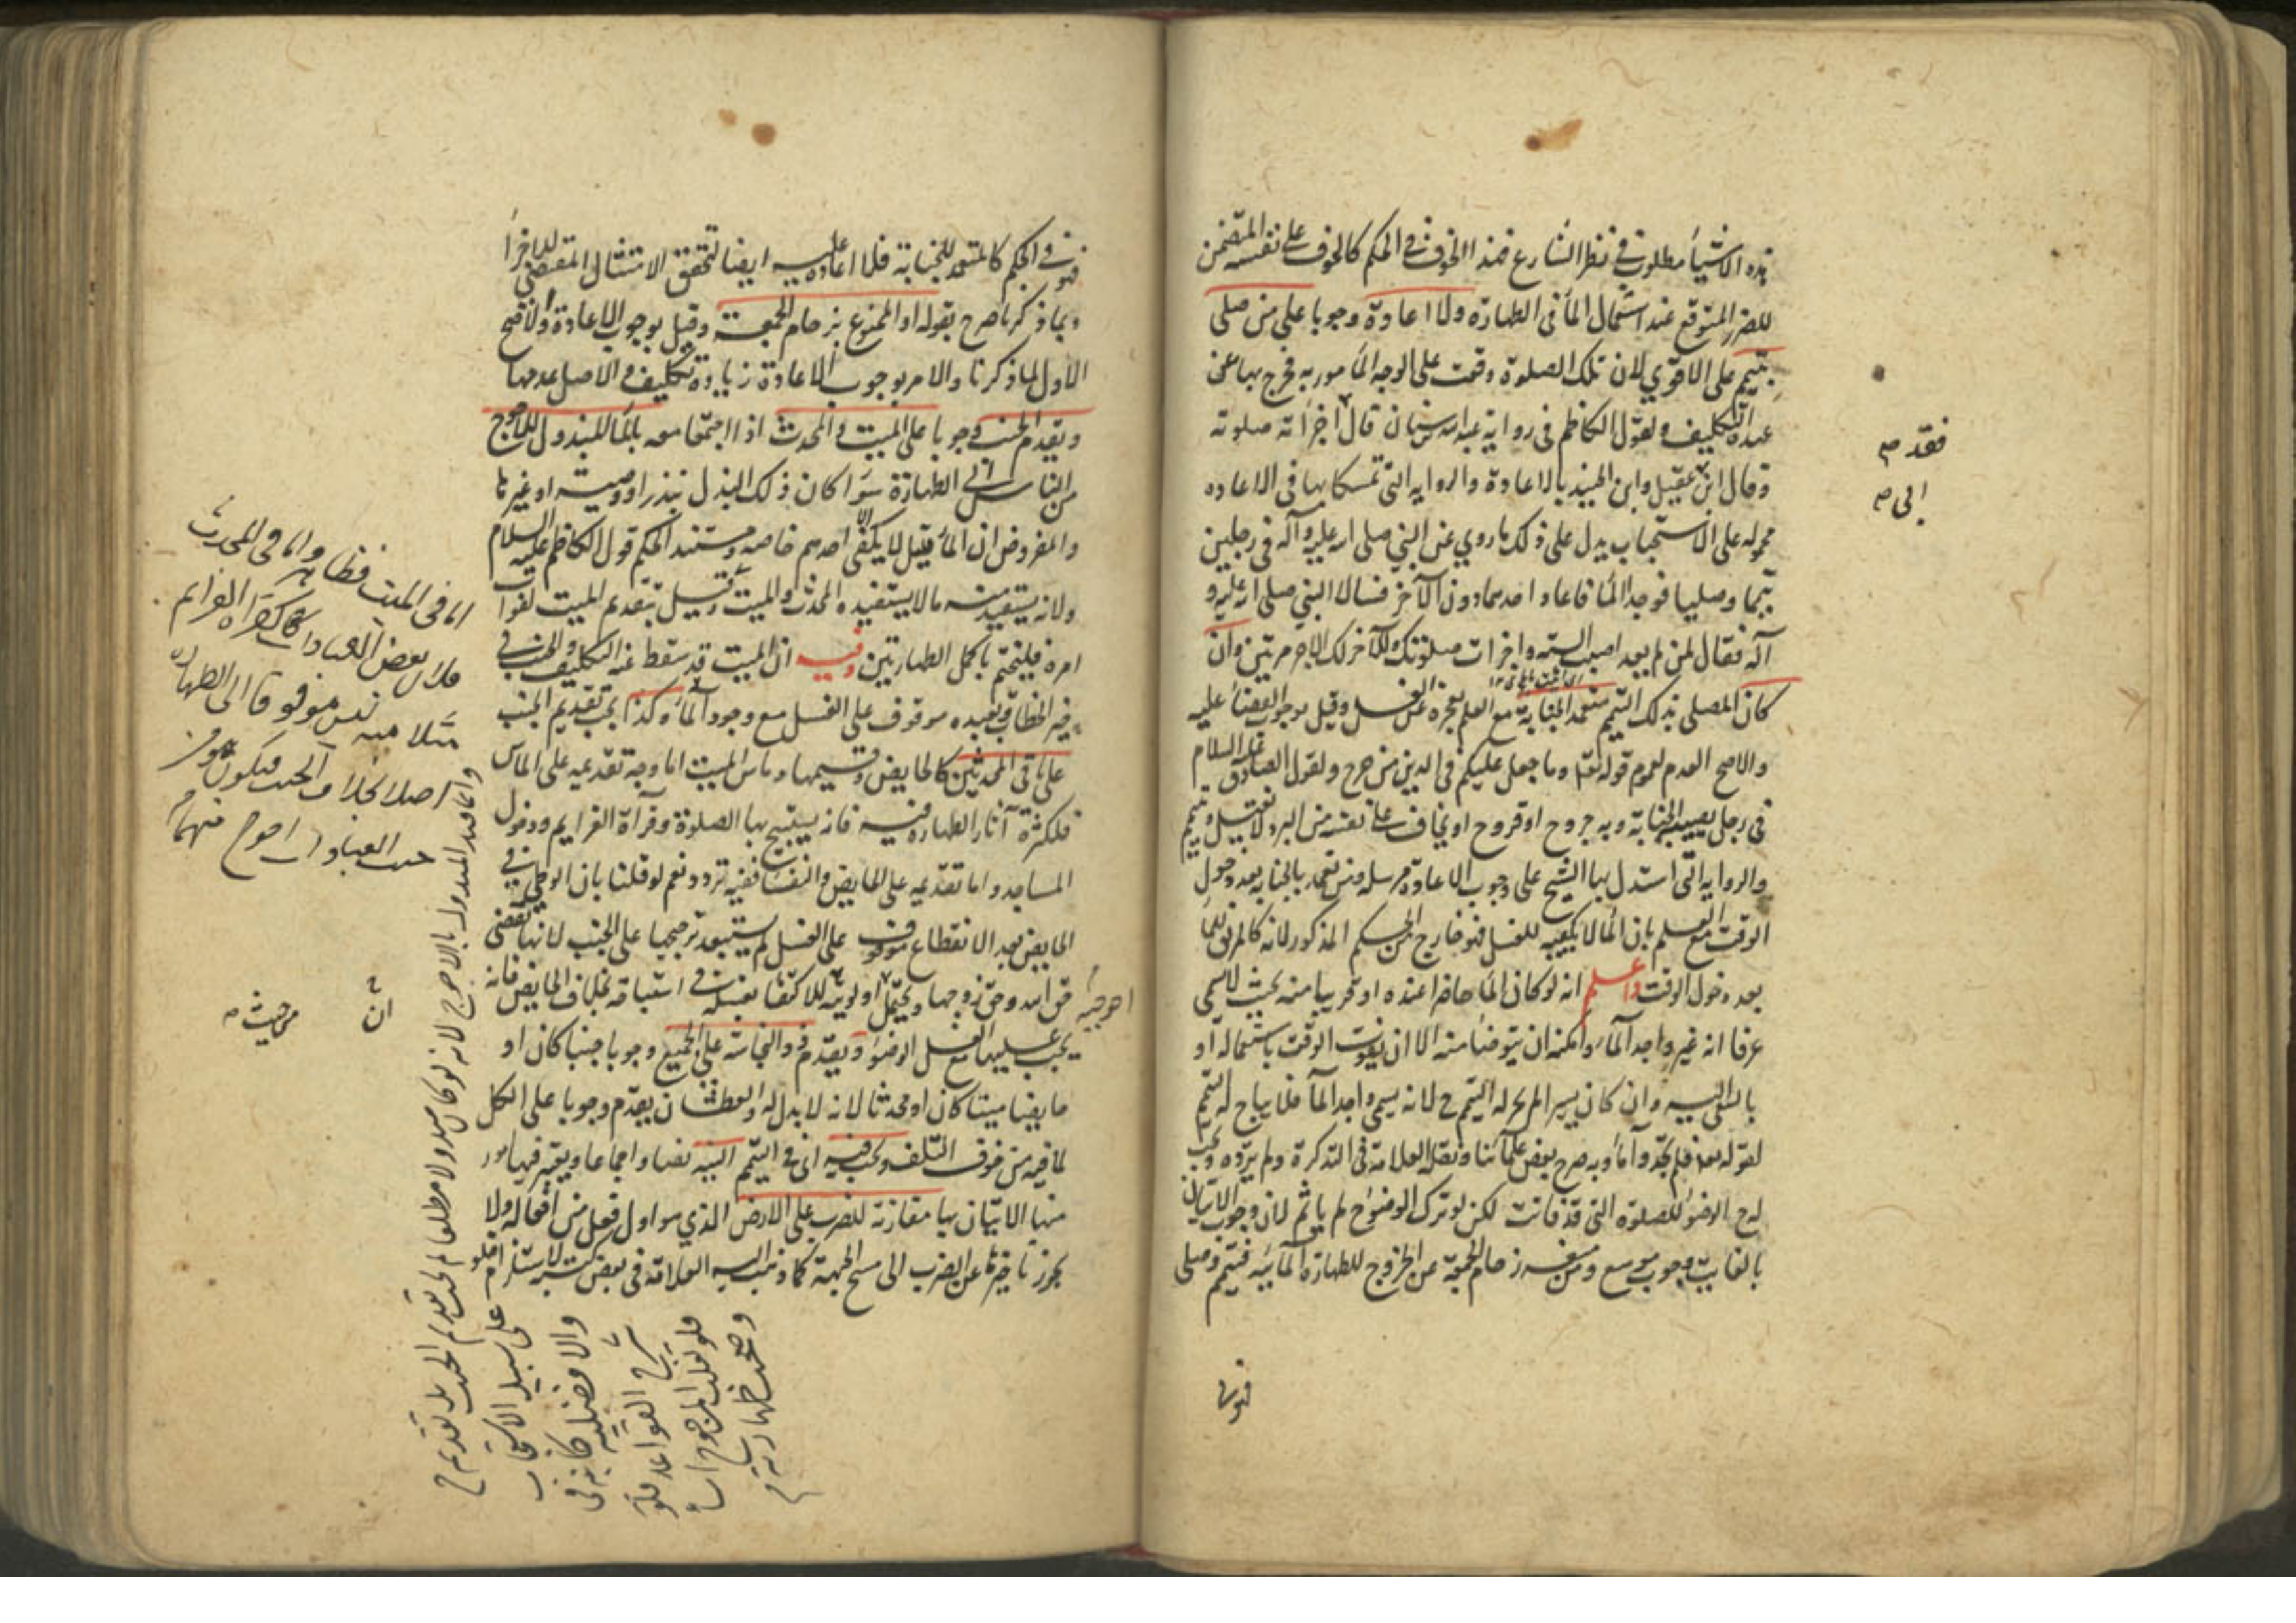 هذه الاشياء مطلوب في نظر الشارع فهذا الخوف في الحكم كالخوف على نفسه المتضمن
للضرر المتوقع عند استعمال الماء في الطهارة ولا اعادة وجوبا على من صلى
بتيمم على الاقوى لان تلك الصلوة وقعت على الوجه المأمور به فخرج بها عن
عهدة التكليف ولقول الكاظم في رواية عبد الله بن سنان قال اجزأته صلوته
وقال ابن عقيل وابن الجنيد بالاعادة والرواية التي تمسكا بها في الاعاده
محموله على الاستحباب يدل على ذلك ما روي عن النبي صلى الله عليه وآله في رجلين
تيمما وصليا فوجد الماء فاعاد احدهما دون الآخر فسألا النبي صلى الله عليه و
آله فقال لمن لم يعد اصبت السنه واجزأت صلوتك وللآخر لك الاجر مرتين وان
كان المصلى بذلك التيمم متعمد الجنابة مع العلم بعجزه عن الغسل وقيل بوجوب القضاء عليه
والاصح العدم لعموم قوله تعا وما جعل عليكم في الدين من حرج ولقول الصادق عليه السلام
في رجل يصيبه الجنابة وبه جروح او قروح او يخاف على نفسه من البرد لا يغتسل ويتيمم
والروايه التي استدل بها الشيخ على وجوب الاعادة مرسله ومن تعمد بالجنابه بعد دخول
الوقت مع العلم بان الماء لا يكفيه للغسل فهو خارج عن الحكم المذكور لانه كالمريق للماء
بعد دخول الوقت واعلم انه لو كان الماء حاضرا عنده او قريبا منه بحيث لا يسمى
عرفا انه غير واجد الماء وامكنه ان يتوضأ منه الا ان يفوت الوقت باستعماله او
بالسعي اليه وان كان يسيرا لم يجز له التيمم ح لانه يسمى واجد الماء فلا يباح له التيمم
لقوله تعا فلم تجدوا ماء وبه صرح بعض علمائنا ونقله العلامة في التذكرة ولم يرده ويجب
له ح الوضوء للصلوة التي قد فاتت لكن لو ترك الوضوء ح لم يأثم لان وجوب الاتيان
بالفايت وجوب موسع ومن منعه زحام الجمعة عن الخروج للطهارة المائيه فتيمم وصلى
فهو
فقد صح
الى صح
فهو في الحكم كالمتعمد للجنابة فلا اعادة عليه ايضا لتحقق الامتثال المقتضى للاجزاء
وبما ذكرنا صرح بقوله او الممنوع بزحام الجمعة وقيل بوجوب الاعادة والاصح
الاول لما ذكرنا والامر بوجوب الاعادة زيادة تكليف والاصل عدمها
ويقدم الجنب وجوبا على الميت والمحدث اذا اجتمعا معه بالماء المبذول للاحوج
من الناس الى الطهارة سواء كان ذلك البذل بنذر او وصيته او غيرها
والمفروض ان الماء قليل لا يكفى الا احدهم خاصه ومستند الحكم قول الكاظم عليه السلام
ولانه يستفيد منه ما لا يستفيده المحدث والميت وقيل بتقديم الميت لفوات
امره فليختم باكمل الطهارتين وفيه ان الميت قد سقط عنه التكليف والجنب في
فيه الخطاب بعبده موقوف على الغسل مع وجود الماء وكذا يجب تقديم الجنب
على باقى المحدثين كالحايض وقسيميها وماس الميت اما وجه تقدمه على الماس
فلكثرة آثار الطهاره فيه فانه يستبيح بها الصلوة وقرآة العزايم ودخول
المساجد واما تقدمه على الحايض والنفساء ففيه تردد نعم لو قلنا بان الوطي في
الحايض بعد الانقطاع موقوف على الغسل لم يستبعد ترجيحها على الجنب لانها تقضى
حق الله وحق زوجها ويحتمل اولويته للاكتفاء بغسله في استباحته بخلاف الحايض فانه
يجب عليها مع الغسل الوضوء ويقدم ذو النجاسة على الجميع وجوبا جنبا كان او
حايضا ميتا كان او محدثا لانه لا بدل له والعطشان يقدم وجوبا على الكل
لما فيه من خوف التلف ويجب فيه اى في التيمم النية نصا واجماعا ويعتبر فيها مور
منها الاتيان بها مقارنة للضرب على الارض الذي هو اول فعل من افعاله ولا
يجوز تاخيرها عن الضرب الى مسح الجبهة كما ذهب اليه العلامة في بعض كتبه لاستلزام خلو
اما في الميت فظاهر واما في المحدث
فلان بعض العبادات كقراءة العزايم
مثلا منه ليس موقوفا الى الطهارة
اصلا بخلاف الجنب فيكون
ان
من حيث صح
على سبيل الاستحباب
والافضليه كما في
شرح القواعد فلو